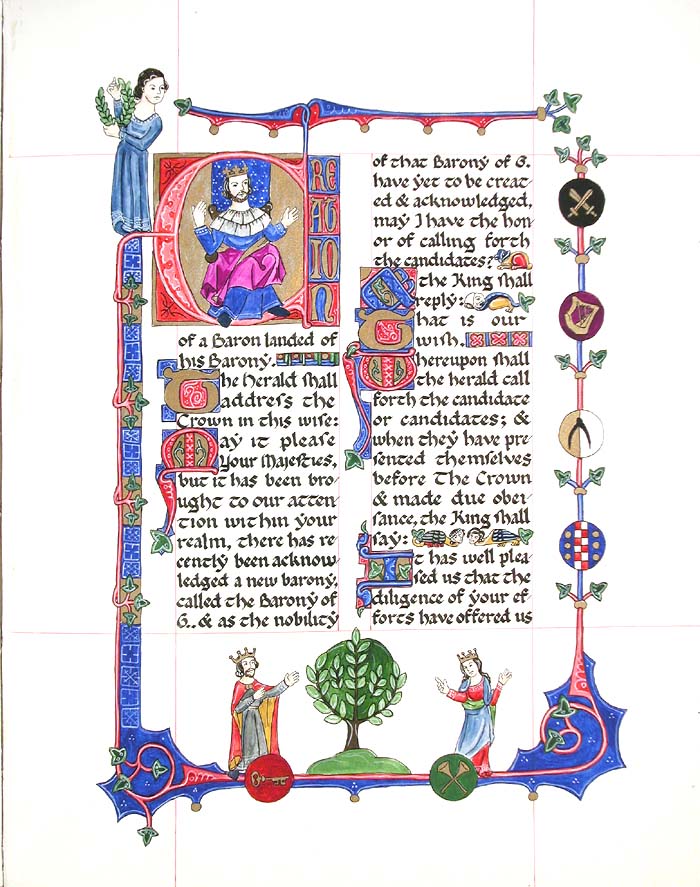 CREATION
of a Baron landed of
his Barony.
The Herald shall
address the
Crown in this wise:
May it please
Your Majesties,
but it has been bro-
ught to our atten-
tion within your
realm, there has re-
cently been acknow-
ledged a new barony,
called the Barony of
G.. & as the nobility
of that Barony of G.
have yet to be creat-
ed & acknowledged,
may I have the hon-
or of calling forth
the candidates?
the King shall
reply:
That is our
wish.
Thereupon shall
the herald call
forth the candidate
or candidates; &
when they have pre-
sented themselves
before The Crown
& made due obei-
sance, the King shall
say:
It has well plea-
sed us that the
diligence of your ef-
forts have offered us